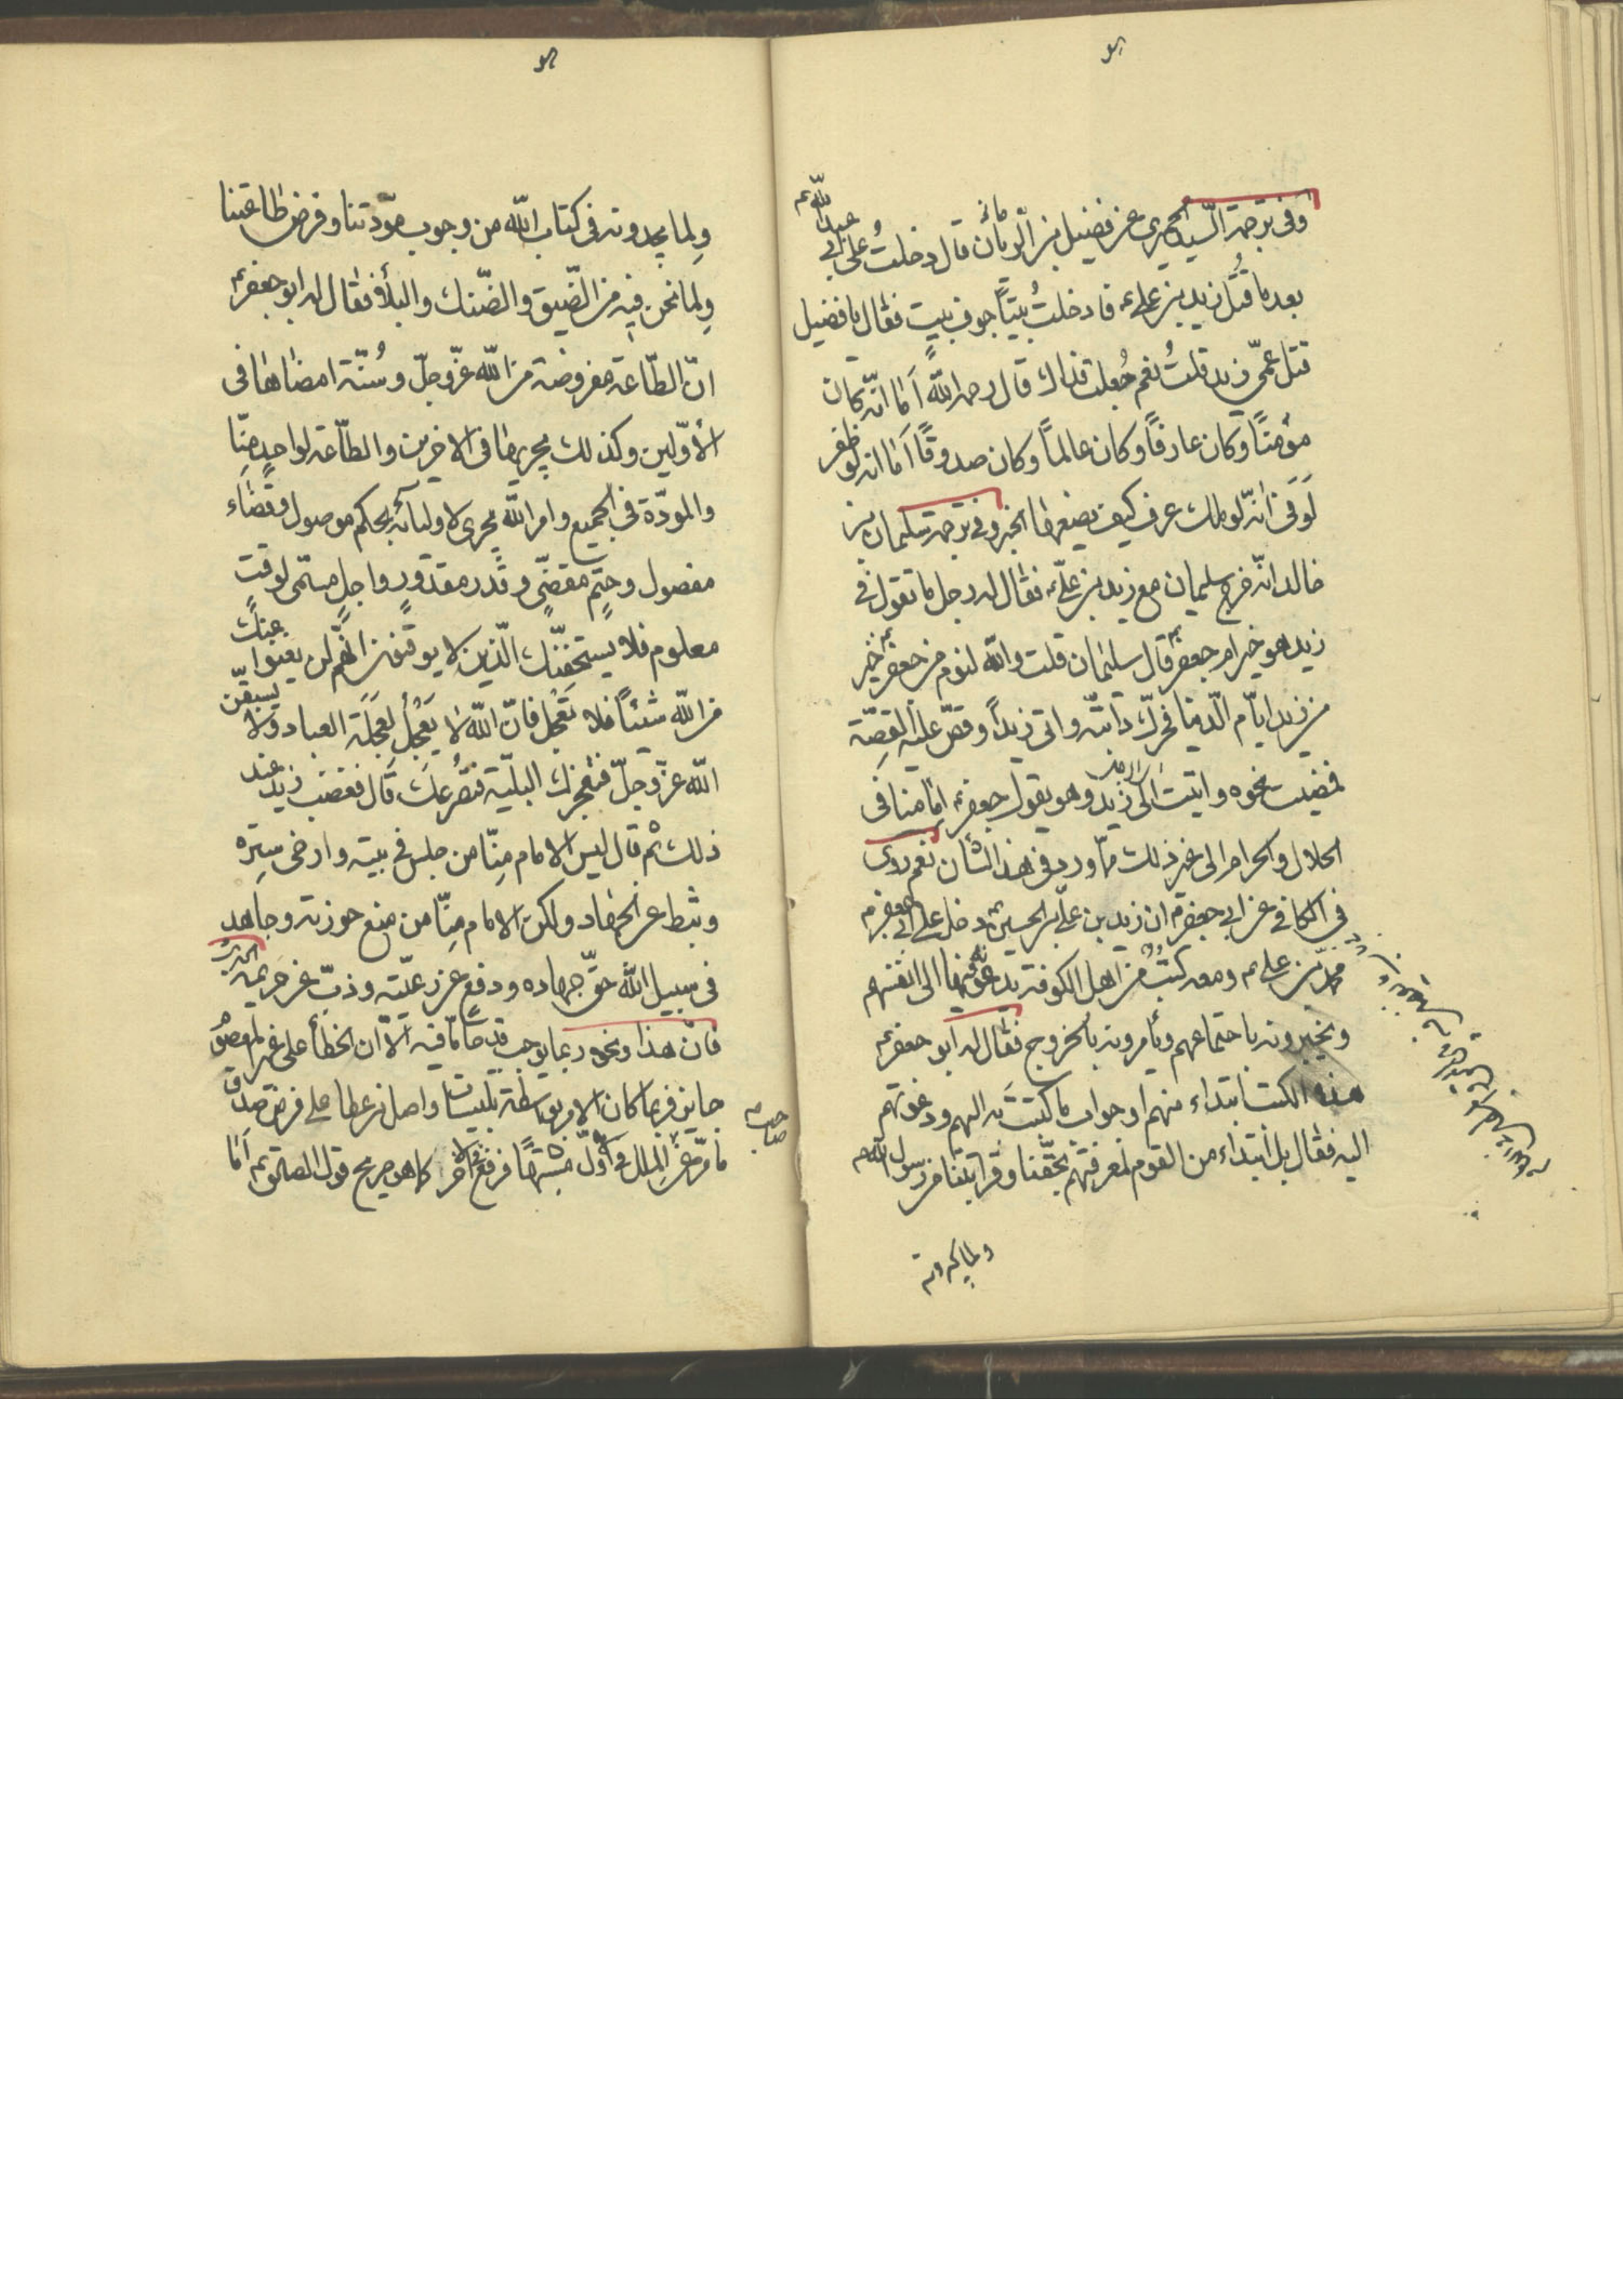 وفي ترجمة السّيد الحميري عن فضيل بن الرسان قال دخلتُ على أبي عبد اللّه ع
بعد ما قُتل زيد بن علي ع فادخلتُ بيتًا جوف بيت فقال يا فضيل
قتل عمّي زيد قلتُ نعم جُعلت فداك قال رحمه اللّه أما انّه كان
مؤمنًا وكان عارفًا وكان عالمًا وكان صدوقًا أما انه لو ظفر
لَوَفى انّه لو ملك عرف كيف يضعها الخبر وفي ترجمة سليمان بن
خالد انّه خرج سليمان مع زيد بن علي ع فقال له رجل ما تقول في
زيد هو خير ام جعفر ع قال سليمان قلت واللّه ليوم من جعفر ع خير
من زيد ايّام الدّنيا فحرّك دابّته واتى زيداً وقصّ عليه القصّة
فمضيت نحوه وانتهيت الى زيد وهو يقول جعفر ع امامنا في
الحلال والحرام الى غير ذلك ممّا ورد في هذا الشأن نعم روى
في الكافي عن ابي جعفر ع ان زيد بن علي بن الحسين ع دخل على ابي جعفر ع
محمّد بن علي ع ومعه كتُبٌ من اهل الكوفة يدعونه فيها الى انفسهم
ويخبرونه باجتماعهم ويأمرونه بالخروج فقال له ابو جعفر ع
هذه الكتب ابتداء منهم او جواب ما كتبتَ به اليهم ودعوتهم
اليه فقال بل ابتداء من القوم لمعرفتهم بحقّنا وقرابتنا من رسول اللّه ص
ولما يجدونه
ولِما يجدونه في كتاب اللّه من وجوب مودّتنا وفرض طاعتنا
ولِما نحن فيه من الضّيق والضّنك والبلاء فقال له ابو جعفر ع
انّ الطّاعة مفروضة من اللّه عزّ وجلّ وسُنّة امضاها في
الأوّلين وكذلك يجريها في الاخرين والطّاعة لواحدٍ منّا
والمودّة في الجميع وامر اللّه يجري لاوليائه بحكم موصول وقضاء
مفصول وحتمٍ مقضيّ وقدر مقدورٍ واجلٍ مسمّى لوقتٍ
معلوم فلا يستخفّنّك الّذين لا يوقنون انّهم لن يغنوا عنك
من اللّه شيئًا فلا تَعْجل فانّ اللّه لا يَعْجل لعَجَلَة العباد ولا تسبقنّ
اللّه عزّ وجلّ فتعجزك البليّة فتصْرعكَ قال فغضب زيد عند
ذلك ثم قال ليس الامام منّا من جلس في بيته وارخى سِتره
وثبّط عن الجهاد ولكن الامام مِنّا من منع حوزته وجاهد
في سبيل اللّه حقّ جهاده ودفع عن رعيّته وذبّ عن حَريمه الحديث
فانّ هذا ونحوه ربما يوجب قدحًا ما فيه الّا ان الخطأ على غير المعصوم
جايز فربما كان الامر بواسطة تلبيسات واصل نزعطا على فرض صدق
ما مرّ عن الملل في اوّل منشرحًا فرفع في الاخر كما هو صريح قول الصادق ع أما
صاحب